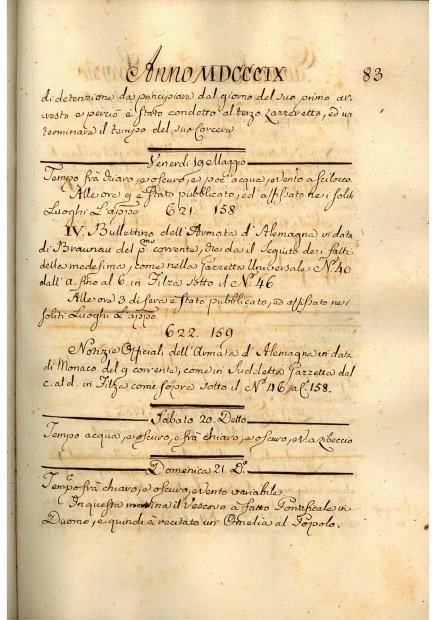 Anno MDCCCIX 83
di detenzione da principiare dal giorno del suo primo ar-
resto e perciò è stato condotto al terzo Lazzeretto, ed ivi
terminare il tempo del suo Carcere
Venerdi 19 Maggio
Tempo frà chiaro, e oscuro, e poc' acqua, e vento a scilocco
Alle ore 9 è stato pubblicato, ed affissato nei soliti
Luoghi L'appo
621. 158
IV. Bullettino dell'Armata d'Alemagna in data
di Braunau del pmo corrente, che dà il seguito dei fatti
della medesima, come nella Gazzetta Universale No. 46
dall' a fino al 6 in Filza sotto il No. 46
Alle ore 3 di sera è stato pubblicato, ed affissato nei
soliti Luoghi L'appo
622. 159
Notizie Officiali dell'Armata d'Alemagna in data
di Monaco del 9 corrente, come in Suddetta Gazzetta del
c. al d. in Filza come sopra sotto il No. 46 al 158.
Sabato 20. Detto
Tempo acqua, e oscuro, e frà chiaro, e oscuro, e V. a libeccio
Domenica 21. Do.
Tempo frà chiaro, e oscuro, e vento variabile
In questa mattina il Vescovo à fatto Pontificale in
Duomo, e quindi à recitato un' Omelia al Popolo.